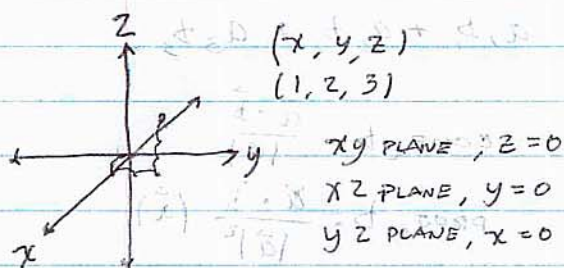 z
(x, y, z)
(1, 2, 3)
y
xy PLANE ; z = 0
xz PLANE, y = 0
yz PLANE, x = 0
x